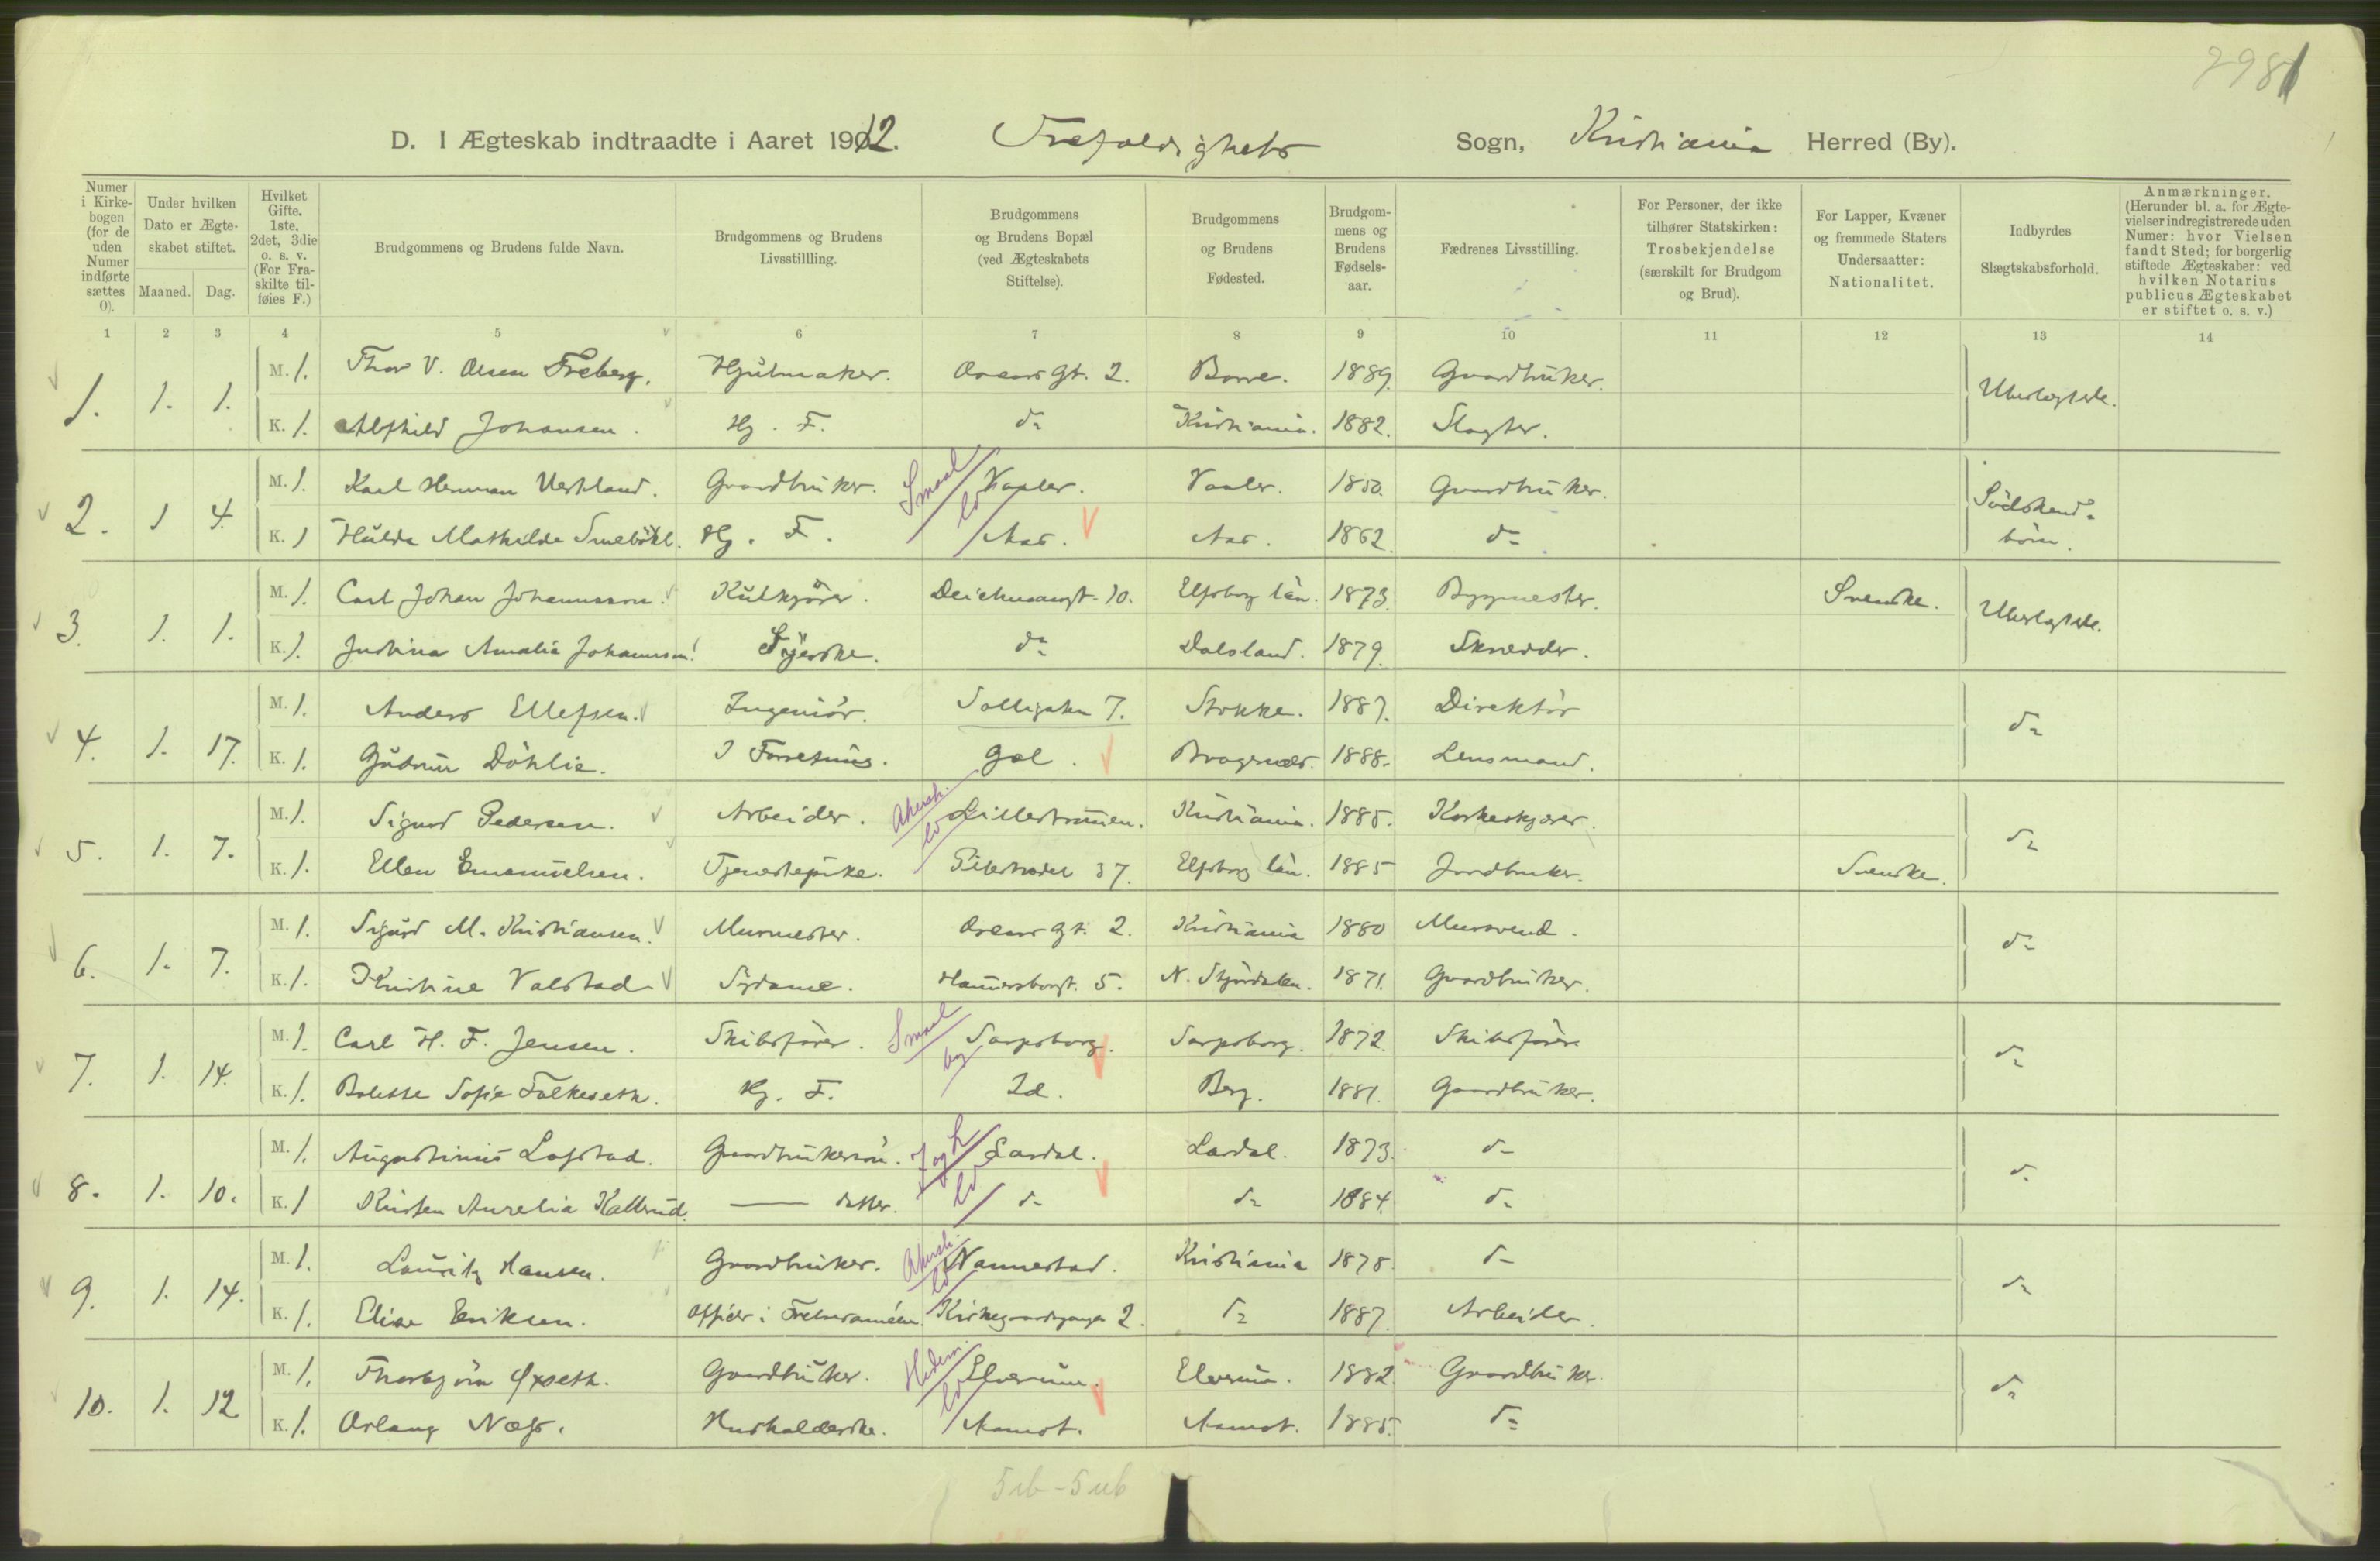 2981
D. I Ægteskab indtraadte i Aaret 1912. Trefoldigheds Sogn, Kristiania Herred (By).
Numer i Kirkebogen (for de uden Numer indførte sættes 0).
Under hvilken Dato er Ægteskabet stiftet.
Maaned. Dag.
Hvilket Gifte. 1ste, 2det, 3die o. s. v. (For Fraskilte tilføies F.)
Brudgommens og Brudens fulde Navn.
Brudgommens og Brudens Livsstillling.
Brudgommens og Brudens Bopæl (ved Ægteskabets Stiftelse).
Brudgommens og Brudens Fødested.
Brudgommens og Brudens Fødselsaar.
Fædrenes Livsstilling.
For Personer, der ikke tilhører Statskirken: Trosbekjendelse (særskilt for Brudgom og Brud).
For Lapper, Kvæner og fremmede Staters Undersaatter: Nationalitet.
Indbyrdes Slægtskabsforhold.
Anmærkninger. (Herunder bl. a. for Ægtevielser indregistrerede uden Numer: hvor Vielsen fandt Sted; for borgerlig stiftede Ægteskaber: ved hvilken Notarius publicus Ægteskabet er stiftet o. s. v.)
1 2 3 4 5 6 7 8 9 10 11 12 13 14
1. 1. 1. M. 1. Thor V. Olsen Freberg. Hjulmaker. Oscars Gt. 2. Borre. 1889. Gaardbruker. Ubeslægtede.
K. 1. Alfhild Johansen. Hj. F. do Kristiania. 1882. Slagter.
2. 1 4. M. 1. Karl Herman Vestland. Gaardbruker. Smaal ld Vaaler. Vaaler. 1850. Gaardbruker. Södskendebörn.
K. 1 Hulda Mathilde Smebökl. Hj. F. Aas. Aas. 1862. do
3. 1. 1. M. 1. Carl Johan Johannsson. Kulkjörer. Deichmansgt. 10. Elfsborg län. 1873. Bygmester. Svenske. Ubeslægtede.
K. 1. Justina Amalia Johannson. Syerske. do Dalsland. 1879. Skrædder.
4. 1. 17. M. 1. Anders Ellefsen. Ingeniör. Solligaten 7. Stokke. 1887. Direktör do
K. 1. Gudrun Döhlie. I Forretning. Gol. Bragernæs. 1888. Lensmand.
5. 1. 7. M. 1. Sigurd Pedersen. Arbeider. Akersh. ld Lillestrømmen. Kristiania. 1885. Korkeskjærer. do
K. 1. Ellen Emanuelsen. Tjenestepike. Pilestrædet 37. Elfsborg län. 1885 Jordbruker. Svenske.
6. 1. 7. M. 1. Sigurd M. Kristiansen. Murmester. Oscars Gt. 2. Kristiania 1880 Mursvend. do
K. 1. Kristine Valstad Sydame. Hammersborgt. 5. N. Stjördalen. 1871. Gaardbruker.
7. 1. 14. M. 1. Carl H. F. Jensen. Skibsförer. Smaal by Sarpsborg. Sarpsborg. 1872. Skibsförer do
K. 1. Bolette Sofie Folkeseth. Hj. F. Id. Berg. 1881. Gaardbruker.
8. 1. 10. M. 1. Augustinus Lofstad. Gaardbrukersön. J og L ld Lardal. Lardal. 1873. do do
K. 1 Kirsten Aurelia Kallerud. — datter. do do 1884. do
9. 1. 14. M. 1. Lauritz Hansen. Gaardbruker. Akersh. ld Nannestad. Kristiania 1878. do do
K. 1. Elise Eriksen. Officer i Frelsesarméen. Kirkegaardsgangen 2. do 1887. Arbeider.
10. 1. 12 M. 1. Thorbjörn Øxseth. Gaardbruker. Hedem. ld Elverum. Elverum. 1882. Gaardbruker. do
K. 1. Aslaug Næss. Husholderske. Aamot. Aamot. 1885. do